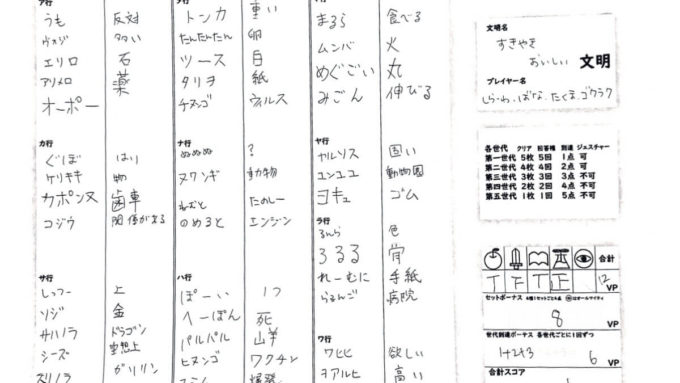 うも 反対
エリロ 石
アリメロ 薬
オーポー
カ行
ぐぼ はり
ケリキキ 物
カポンヌ 歯車
コジウ 関係がある
サ行
しっつー 上
ソジ 金
サハノラ ドラゴン
シーズ 空想上
スリノラ ガソリン
トンカ 重い
たんたんたん 卵
ツース 白
タリヲ 紙
チヌンゴ ウィルス
ナ行
ぬぬぬ ?
ヌワンギ 動物
ねむと たのしー
のめろと エンジン
ハ行
ぽーい 1つ
へーぽん 死
パルパル 山羊
ヒヌンゴ ワクチン
爆発
まるら 食べる
ムンバ 火
めぐごい 丸
みごん 伸びる
ヤ行
ヤルソス 固い
ユンユユ 動物園
ヨキュ ゴム
ラ行
るんら 色
ろるる 骨
れーむに 手紙
らるんご 病院
ワ行
ワヒヒ 欲しい
ヲアルヒ 高い
文明名
すきやき
おいしい 文明
プレイヤー名
しら・わ、ばな、たくほ、ゴクラク
各世代 クリア 回答権 到達 ジェスチャー
第一世代 5枚 5回 1点 可
第二世代 4枚 4回 2点 可
第三世代 3枚 3回 3点 不可
第四世代 2枚 2回 4点 不可
第五世代 1枚 1回 5点 不可
合計
12
VP
セットボーナス 4種1セットごと4点 はオールマイティ
8
VP
世代到達ボーナス 各世代ごとに1回ずつ
1+2+3 6 VP
合計スコア